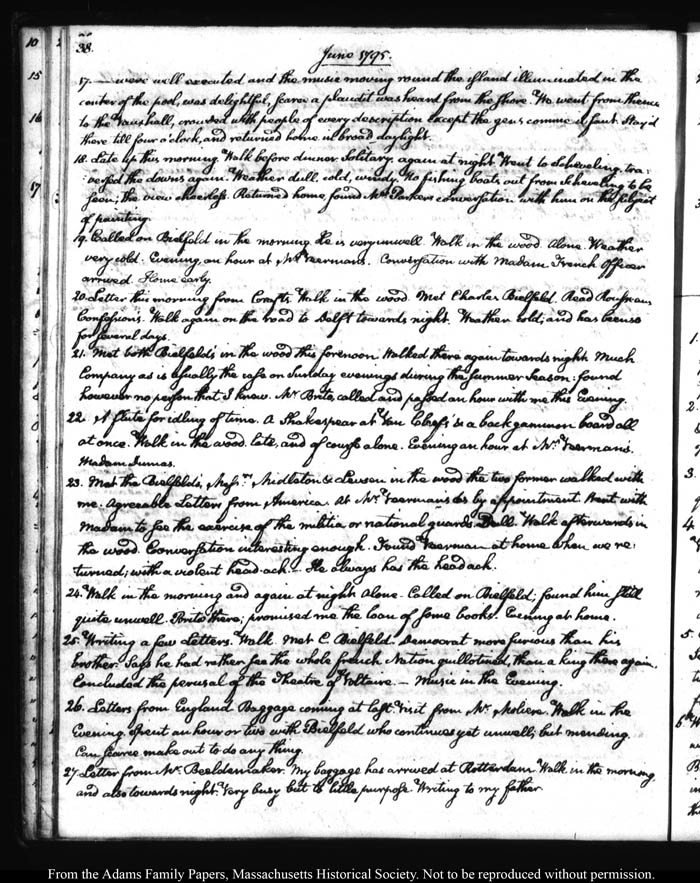 38.
June 1795.
17. — were well executed and the music moving round the Island illuminated in the
center of the pool, was delightful, scarce a plaudit was heard from the shore. We went from thence
to the Vauxhall, crowded with people of every description except the gens comme il faut. Stay'd
there till four o'clock, and returned home in broad daylight.
18. Late up this morning. Walk before dinner Solitary. again at night. Went to Scheveling. tra-
versed the downs again. Weather dull, cold, windy. No fishing boats out from Scheveling to be
seen; the view cheerless. Returned home, found Mr. Parker. conversation with him on the subject
of painting.
19. Called on Bielfeld in the morning. He is very unwell. Walk in the wood. Alone. Weather
very cold. Evening, an hour at Mr. Veerman's. Conversation with Madam. French Officer
arrived. Home early.
20. Letter this morning from Crafts. Walk in the wood. Met Charles Bielfeld. Read Rousseau's
Confessions. Walk again on the road to Delft towards night. Weather cold; and has been so
for several days.
21. Met both Bielfeld's in the wood this forenoon. Walked there again towards night. Much
Company as is usually the case on Sunday evenings during the summer Season: found
however no person that I knew. Mr. Brito, called and passed an hour with me this Evening.
22. A flute for idling of time. A Shakespear at Van Cleef's & a backgammon board all
at once. Walk in the wood. late, and of course alone. Evening an hour at Mr. Veerman's.
Madam Dumas.
23. Met the Bielfelds, Messrs. Midleton & Leusen in the wood the two former walked with
me. Agreeable Letters from America. At Mr. Veerman's by appointment. Went with
Madam to see the exercise of the militia or national guards. Dull. Walk afterwards in
the wood. Conversation interesting enough. Found Veerman at home when we re-
turned; with a violent head-ach. — He always has the head ach.
24. Walk in the morning and again at night Alone. Called on Bielfeld; found him still
quite unwell. Brito there; promised me the loan of some books. Evening at home.
25. Writing a few Letters. Walk. Met C. Bielfeld. Democrat more furious than his
brother. Says he had rather see the whole french Nation guillotined, than a king there again.
Concluded the perusal of the Theatre of Voltaire. — Music in the Evening.
26. Letters from England Baggage coming at last. Visit from Mr. Moliere. Walk in the
Evening. Spent an hour or two with Bielfeld who continues yet unwell; but mending.
Can scarce make out to do any thing.
27. Letter from Mr. Beeldemaker. My baggage has arrived at Rotterdam. Walk in the morning,
and also towards night. Very busy but to little purpose. Writing to my father.
From the Adams Family Papers, Massachusetts Historical Society. Not to be reproduced without permission.